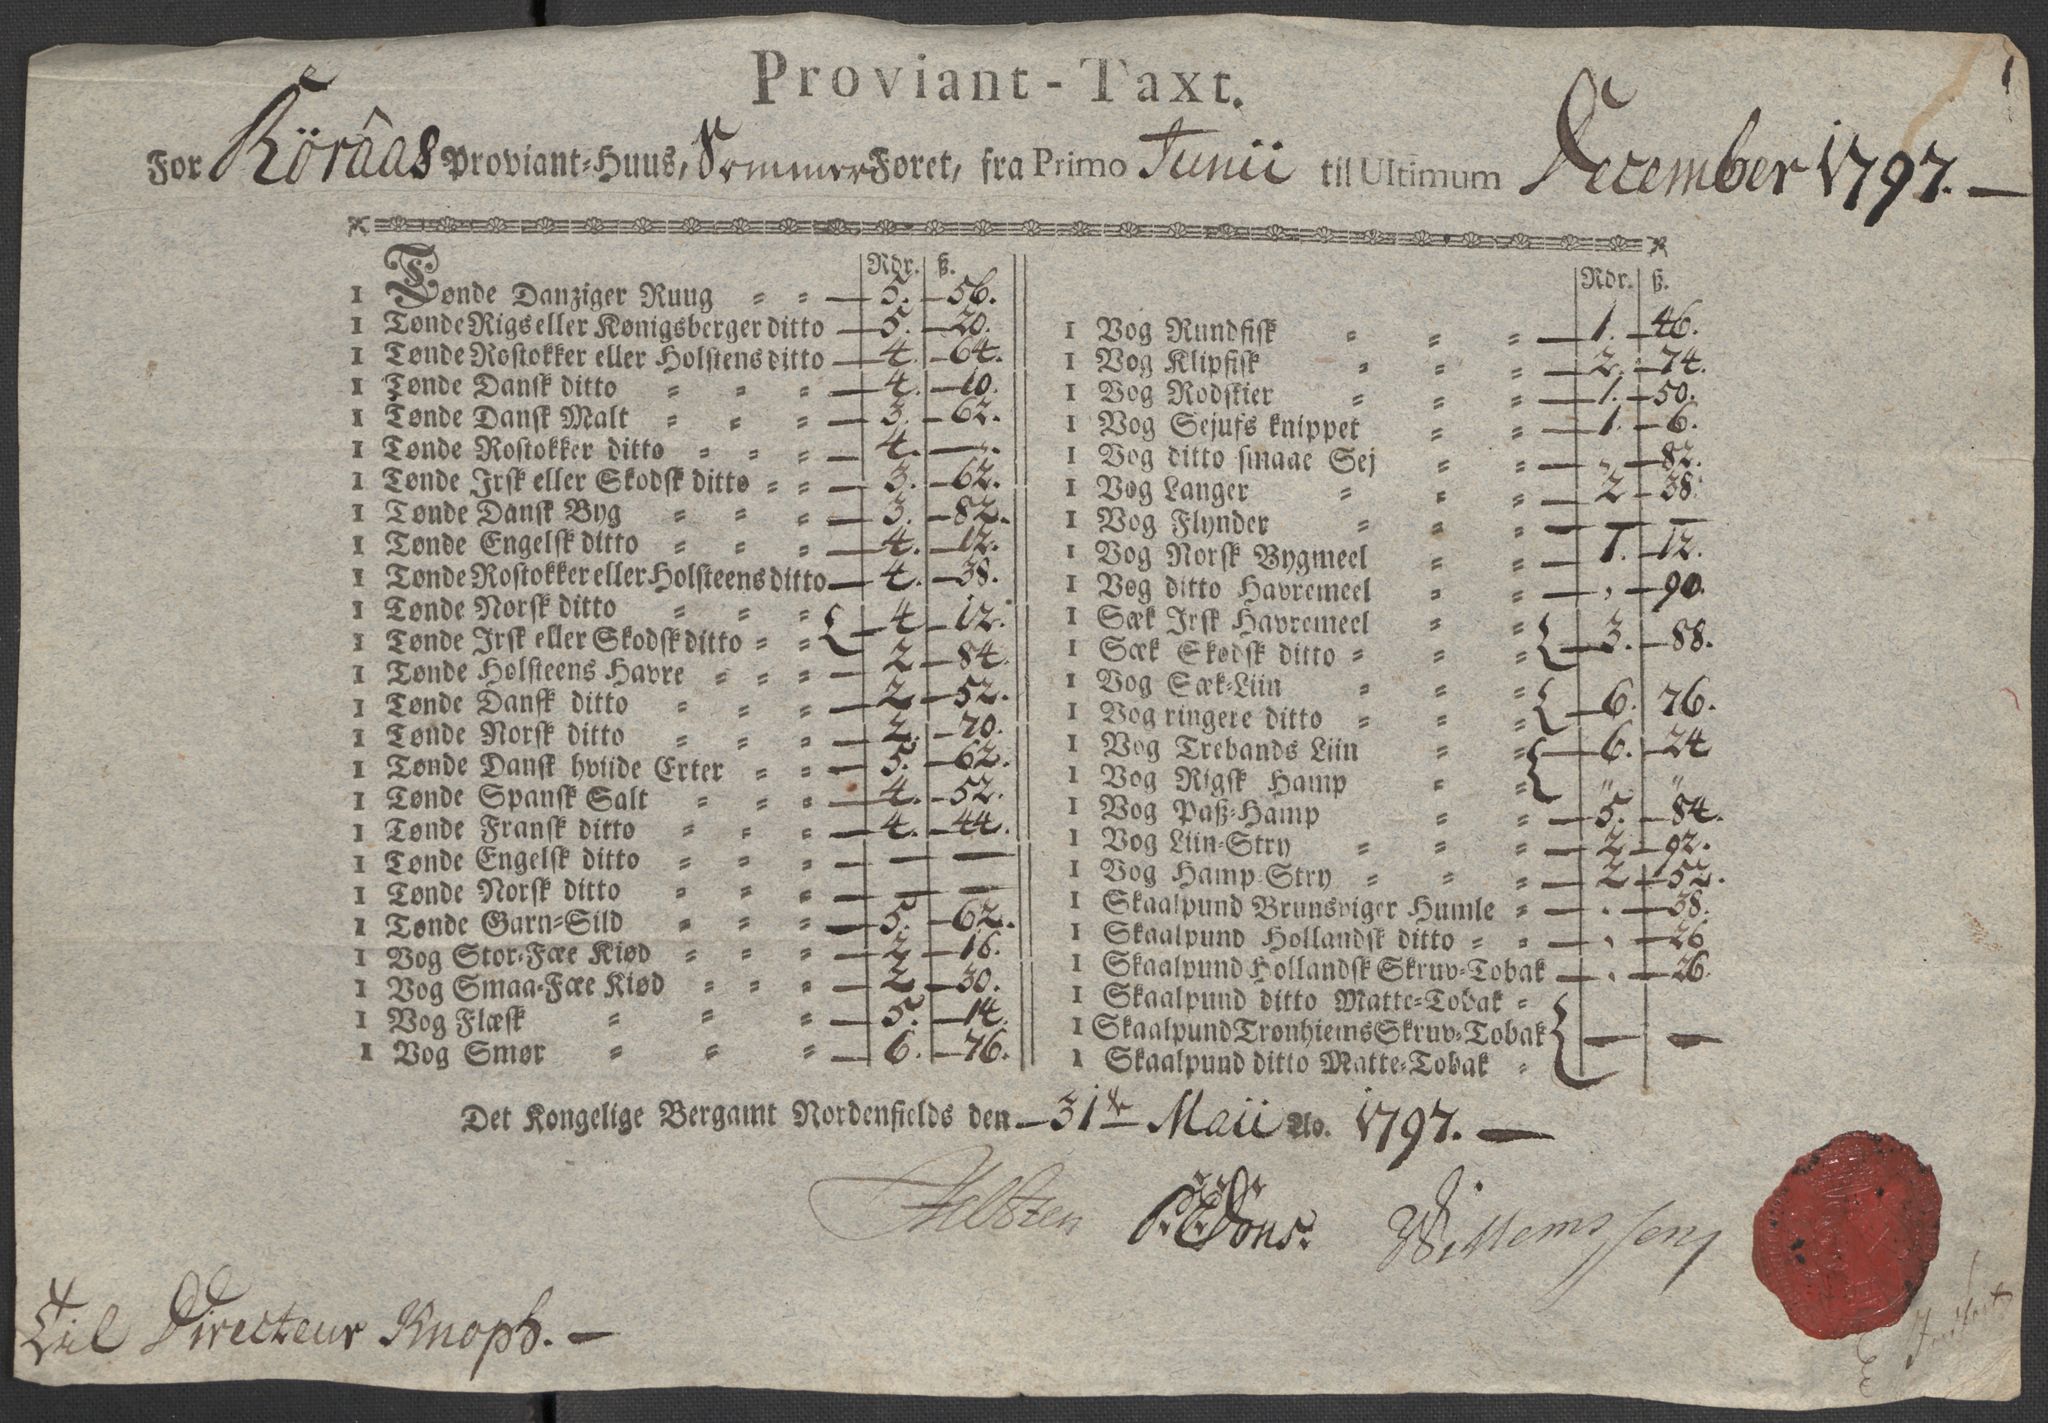 Proviant-Taxt.
For Röraas Proviant-Huus, Sommer Føret, fra Primo Junii til Ultimum December 1797.
Rdr. ß.
1 Tønde Danziger Ruug 5. 56.
1 Tønde Rigs eller Kønigsberger ditto 5. 20.
1 Tønde Rostokker eller Holstens ditto 4. 64.
1 Tønde Dansk ditto 4. 10.
1 Tønde Dansk Malt 3. 62.
1 Tønde Rostokker ditto 4. —
1 Tønde Irsk eller Skodsk ditto 3. 62.
1 Tønde Dansk Byg 3. 82.
1 Tønde Engelsk ditto 4. 12.
1 Tønde Rostokker eller Holsteens ditto 4. 38.
1 Tønde Norsk ditto { 4 12.
1 Tønde Irsk eller Skodsk ditto
1 Tønde Holsteens Havre 2 84.
1 Tønde Dansk ditto 2 52.
1 Tønde Norsk ditto 2. 20.
1 Tønde Dansk hviide Erter 5. 62.
1 Tønde Spansk Salt 4. 52.
1 Tønde Fransk ditto 4. 44.
1 Tønde Engelsk ditto — —
1 Tønde Norsk ditto — —
1 Tønde Garn-Sild 5. 62.
1 Vog Stor-Fæe Kiød 2 16.
1 Vog Smaa-Fæe Kiød 2 30.
1 Vog Flæsk 5. 14.
1 Vog Smør 6. 76.
Rdr. ß.
1 Vog Rundfisk 1. 46.
1 Vog Klipfisk 2. 74.
1 Vog Rodskier 1. 50.
1 Vog Sejufs knippet 1. 6.
1 Vog ditto smaae Sej 82.
1 Vog Langer 2 38.
1 Vog Flynder — —
1 Vog Norsk Bygmeel 1. 12.
1 Vog ditto Havremeel 90.
1 Sæk Irsk Havremeel { 3. 88.
1 Sæk Skodsk ditto
1 Vog Sæk-Liin { 6. 76.
1 Vog ringere ditto
1 Vog Trebands Liin { 6. 24
1 Vog Rigsk Hamp " "
1 Vog Paß-Hamp 5. 84.
1 Vog Liin-Stry 2 92.
1 Vog Hamp-Stry 2 52.
1 Skaalpund Brunsviger Humle 38.
1 Skaalpund Hollandsk ditto 26
1 Skaalpund Hollandsk Skruv-Tobak 26.
1 Skaalpund ditto Matte-Tobak {
1 Skaalpund Trønhiems Skruv-Tobak — —
1 Skaalpund ditto Matte-Tobak
Det Kongelige Bergamt Nordenfields den 31te Maii Ao. 1797.
P. E. Dons.
Til Directeur Knoph.